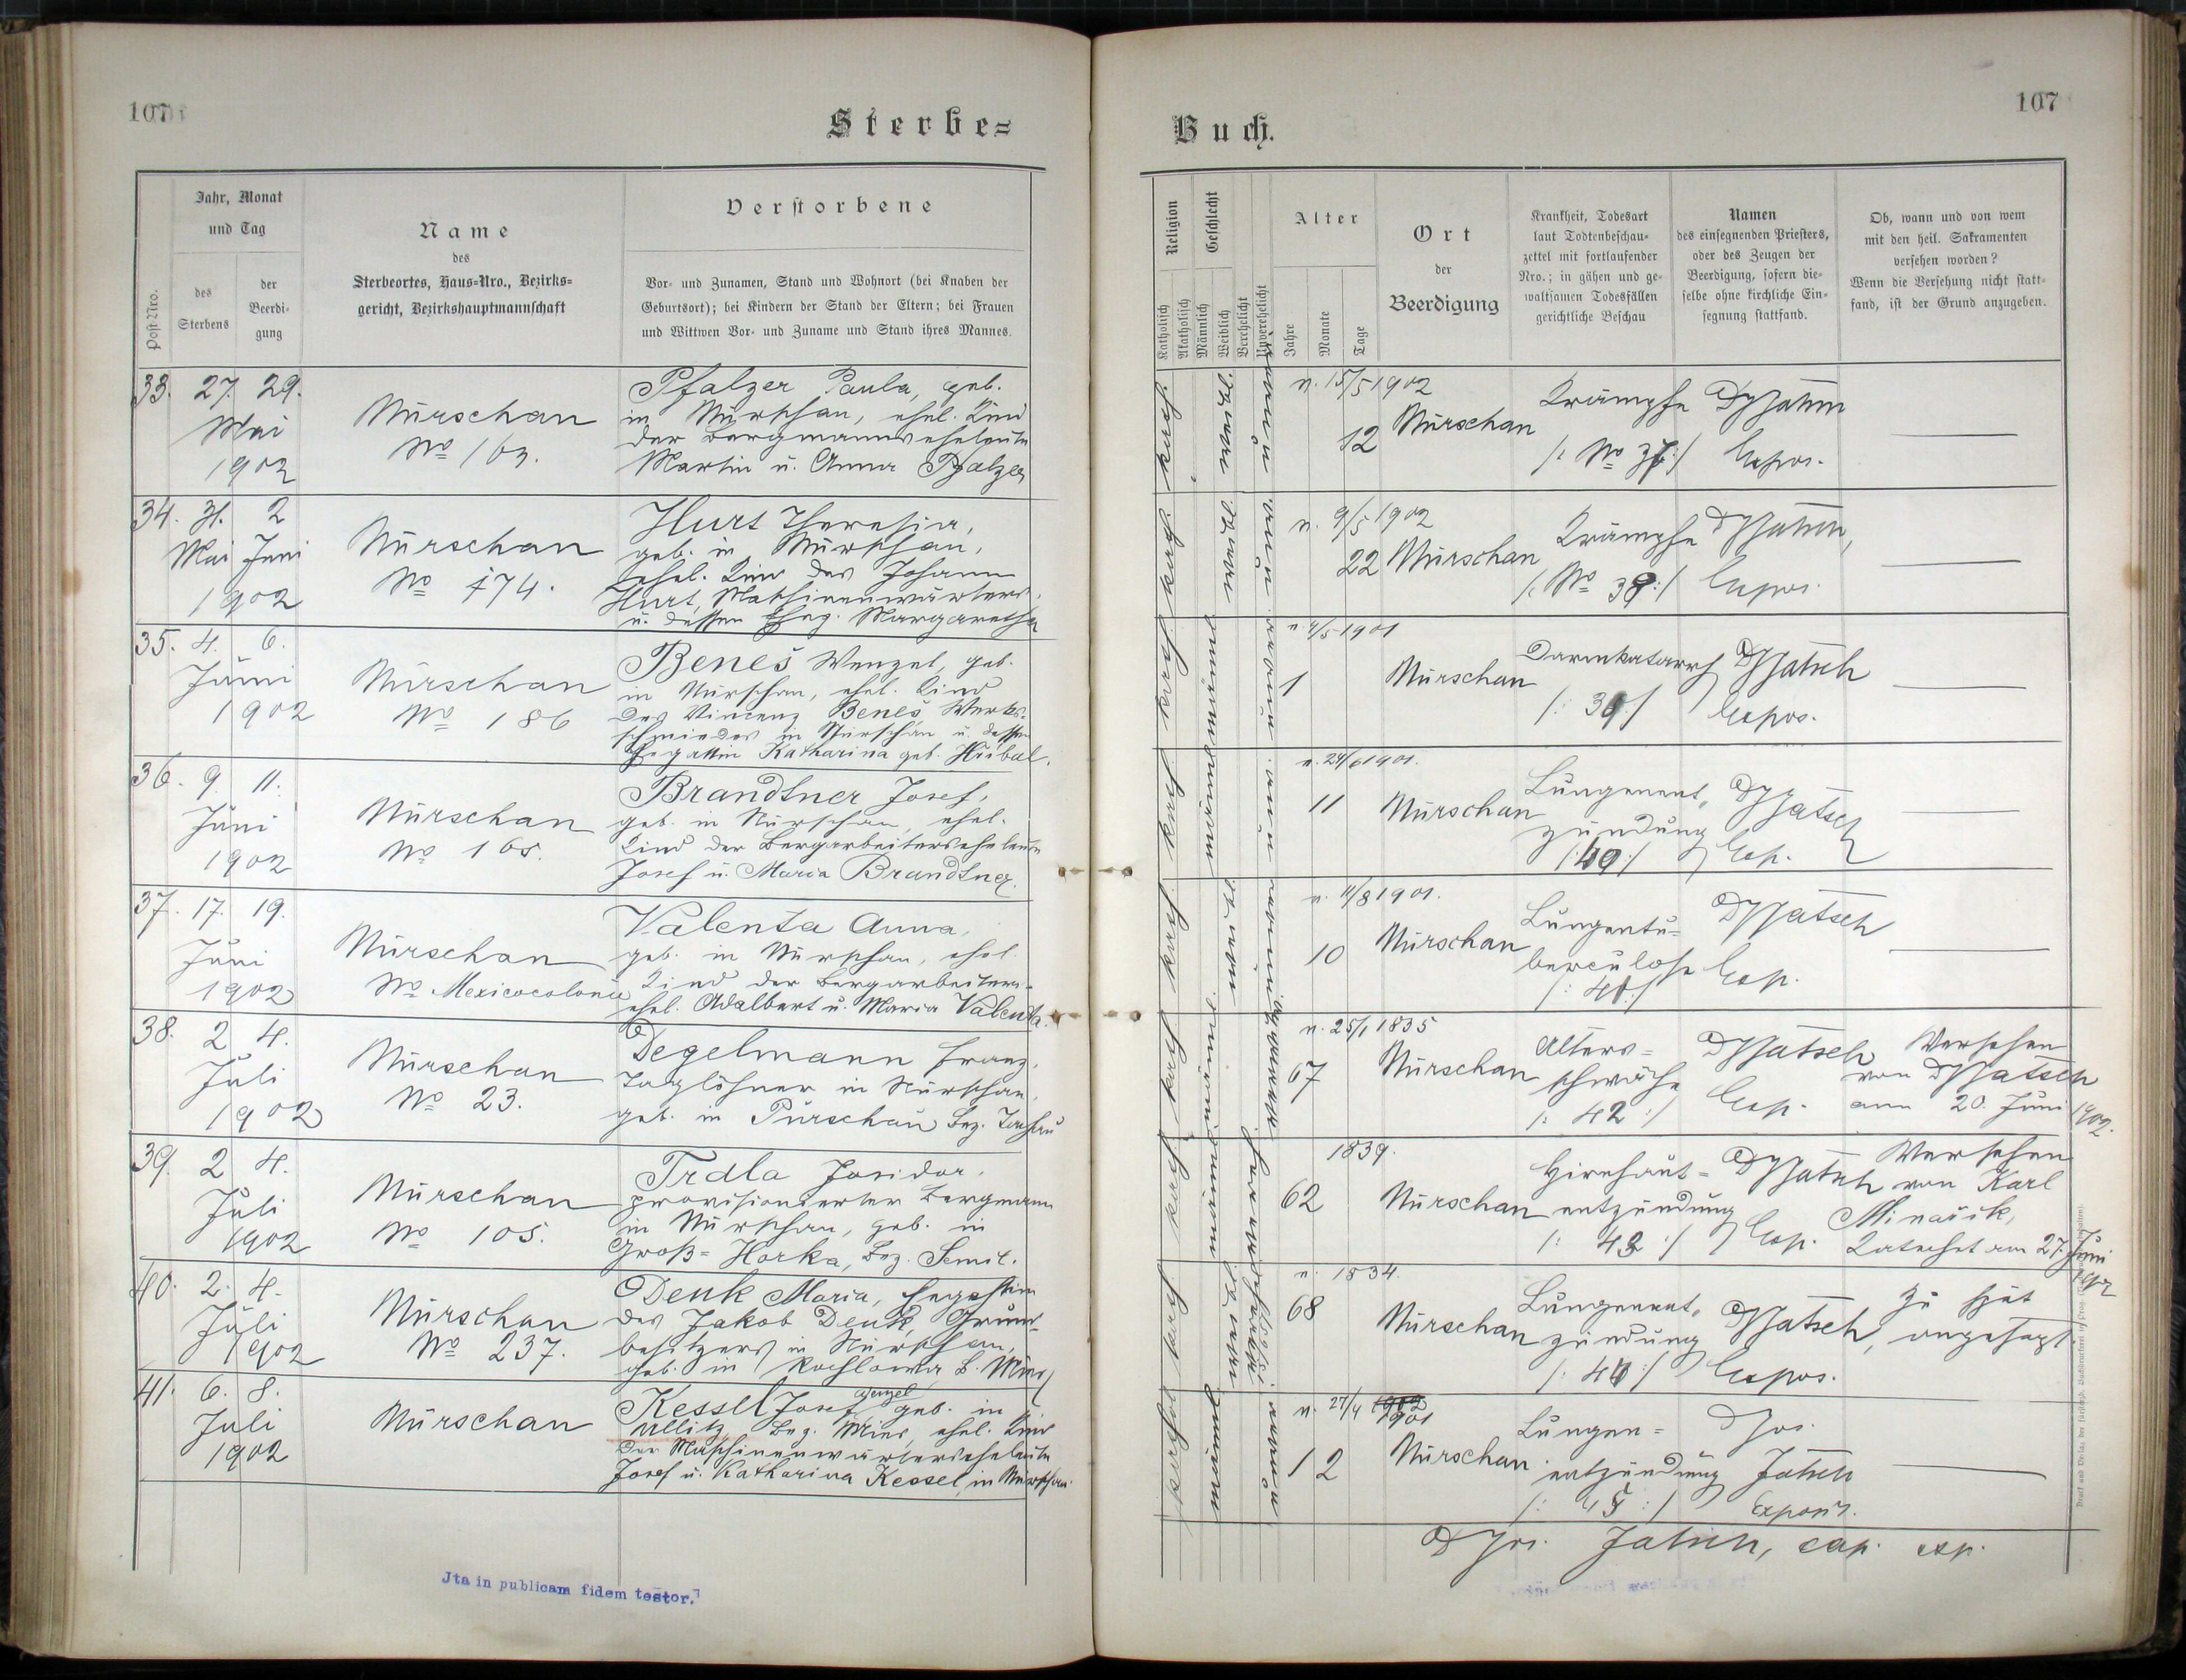 107
Sterbe=
Jahr, Monat
und Tag
Post-Nro.
des
Sterbens
der
Beerdi-
gung
Name
des
Sterbeortes, Haus-Nro., Bezirks-
gericht, Bezirkshauptmannschaft
Verstorbene
Vor- und Zunamen, Stand und Wohnort (bei Knaben der
Geburtsort); bei Kindern der Stand der Eltern; bei Frauen
und Wittwen Vor- und Zuname und Stand ihres Mannes.
33. 27. 29.
Mai
1902
Nürschan
No 163.
Pfalzer Paula, geb.
in Nürschan, ehel. Kind
der Bergmannseheleute
Martin u. Anna Pfalzer
34. 31. 2
Mai Juni
1902
Nürschan
No 174.
Hurt Theresia,
geb. in Nürschan,
ehel. Kind des Johann
Hurt, Maschinenwärters
u. dessen Eheg. Margaretha
35. 4. 6.
Juni
1902
Nürschan
No 186
Beneš Wenzel, geb.
in Nürschan, ehel. Kind
des Vincenz Beneš, Werks-
schmiedes in Nürschan u. dessen
Ehegattin Katharina geb. Hubal.
36. 9. 11.
Juni
1902
Nürschan
No 165.
Brandtner Josef,
geb. in Nürschan, ehel.
Kind der Bergarbeiterseheleute
Josef u. Maria Brandtner.
37. 17. 19.
Juni
1902
Nürschan
No Mexicocolonie
Valenta Anna,
geb. in Nürschan, ehel.
Kind der Bergarbeiters-
ehel. Adalbert u. Maria Valenta.
38. 2 4.
Juli
1902
Nürschan
No 23.
Degelmann Franz,
Taglöhner in Nürschan,
geb. in Purschau Bez. Tachau
39. 2 4.
Juli
1902
Nürschan
No 105.
Trdla Isidor,
provisionierter Bergmann
in Nürschan, geb. in
Groß-Horka, Bez. Semil.
40. 2. 4.
Juli
1902
Nürschan
No 237.
Denk Maria, Ehegattin
des Jakob Denk, Grund-
besitzers in Nürschan,
geb. in Kochlowa B. Mies
41. 6. 8.
Juli
1902
Nürschan
Wenzel
Kessel Josef geb. in
Ullitz, Bez. Mies, ehel. Kind
der Maschinenwärterseheleute
Josef u. Katharina Kessel, in Nürschan.
Jta in publicam fidem testor.
107
Buch.
Religion
Katholisch
Akatholisch
Geschlecht
Männlich
Weiblich
Verehelicht
Unverehelicht
Alter
Jahre
Monate
Tage
Ort
der
Beerdigung
Krankheit, Todesart
laut Todtenbeschau-
zettel mit fortlaufender
Nro.; in gähen und ge-
waltsamen Todesfällen
gerichtliche Beschau
Namen
des einsegnenden Priesters,
oder des Zeugen der
Beerdigung, sofern die-
selbe ohne kirchliche Ein-
segnung stattfand.
Ob, wann und von wem
mit den heil. Sakramenten
versehen worden?
Wenn die Versehung nicht statt-
fand, ist der Grund anzugeben.
kath. weibl.
n. 15/5 1902
12
Nürschan
Krämpfe
/: No 37 :/
Expos.
kath. weibl.
n. 9/5 1902
22 Nürschan
Krämpfe
/: No 38 :/
Expos.
kath. männl
n. 4/5 1901
1
Nürschan
Darmkatarrh
/: 39 :/
Expos.
kath männl
n. 24/6 1901.
11
Nürschan
Lungenent-
zündung
/: 40 :/
Exp.
kath. weibl.
n. 11/8 1901.
10
Nürschan
Lungentu-
berculose
/: 41 :/
Exp.
kath männl.
n. 25/1 1835
67
Nürschan
Alters-
schwäche
/: 42 :/
Exp.
Versehen
von
am 20. Juni 1902.
kath. männl
1839.
62
Nürschan
Hirnhaut-
entzündung
/: 43 :/
Exp.
Versehen
von Karl
Minařik,
Katechet am 27. Juni
kath. weibl.
n. 1834.
68
Nürschan
Lungenent-
zündung
/: 44 :/
Expos.
Zu spät
angesagt.
katholisch männl
n. 27/4 1902
1901
12
Nürschan
Lungen-
entzündung
/: 45 :/
P Jos.
Jatsch
Exposit.
P Jos. Jatsch, cap. exp.